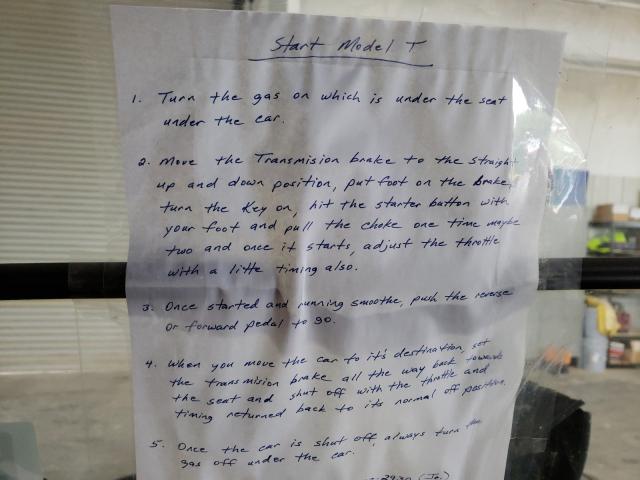 Start Model T
1. Turn the gas on which is under the seat
under the car.
2. Move the Transmision brake to the straight
up and down position, put foot on the brake,
turn the Key on, hit the starter button with
your foot and pull the choke one time maybe
two and once it starts, adjust the throttle
with a little timing also.
3. Once started and running smoothe, push the reverse
or forward pedal to go.
4. When you move the car to it's destination, set
the transmision brake all the way back towards
the seat and shut off with the throttle and
timing returned back to its normal off position.
5. Once the car is shut off, always turn the
gas off under the car.